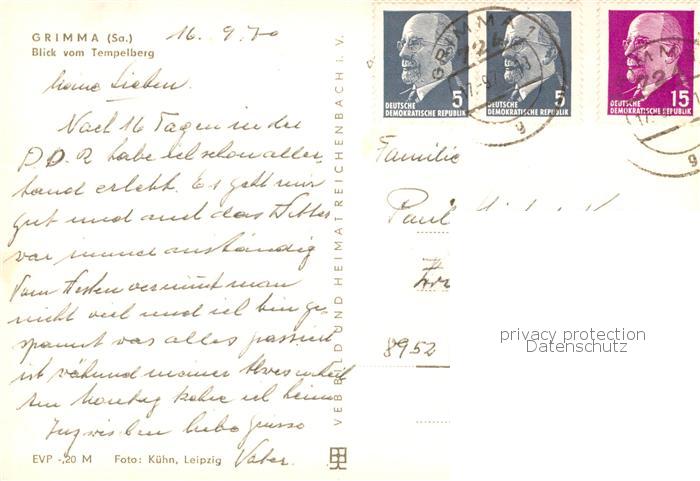 GRIMMA (Sa.)
Blick vom Tempelberg
16. 9. 70
meine Lieben.
Nach 16 Tagen in der
D.D.R habe ich schon aller-
hand erlebt. Es geht mir
gut und auch das Wetter
war immer anständig
Vom Westen vernimmt man
nicht viel und ich bin ge-
spannt was alles passiert
ist während meiner Abwesenheit
Am Montag kehre ich heim
Inzwischen liebe Grüsse
Vater.
EVP -,20 M Foto: Kühn, Leipzig
VEB BILD UND HEIMAT REICHENBACH i. V.
5
DEUTSCHE
DEMOKRATISCHE REPUBLIK
5
DEUTSCHE
DEMOKRATISCHE REPUBLIK
15
DEUTSCHE
DEMOKRATISCHE REPUBLIK
GRIMMA 1
g
g
Familie
Paul
8952
privacy protection
Datenschutz